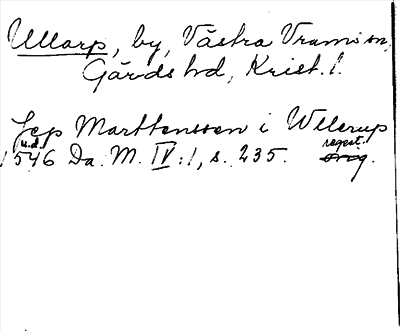 Ullarp, by, Västra Vrams sn,
Gärds hd, Krist. l.
Jep Marttenssen i Wllerup
u.d.
1546 Da. M. IV:1, s. 235. regest.